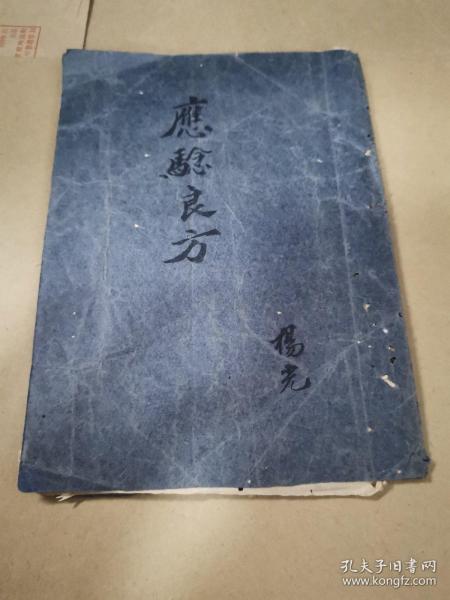 應騐良方
楊光
孔夫子旧书网
www.kongfz.com